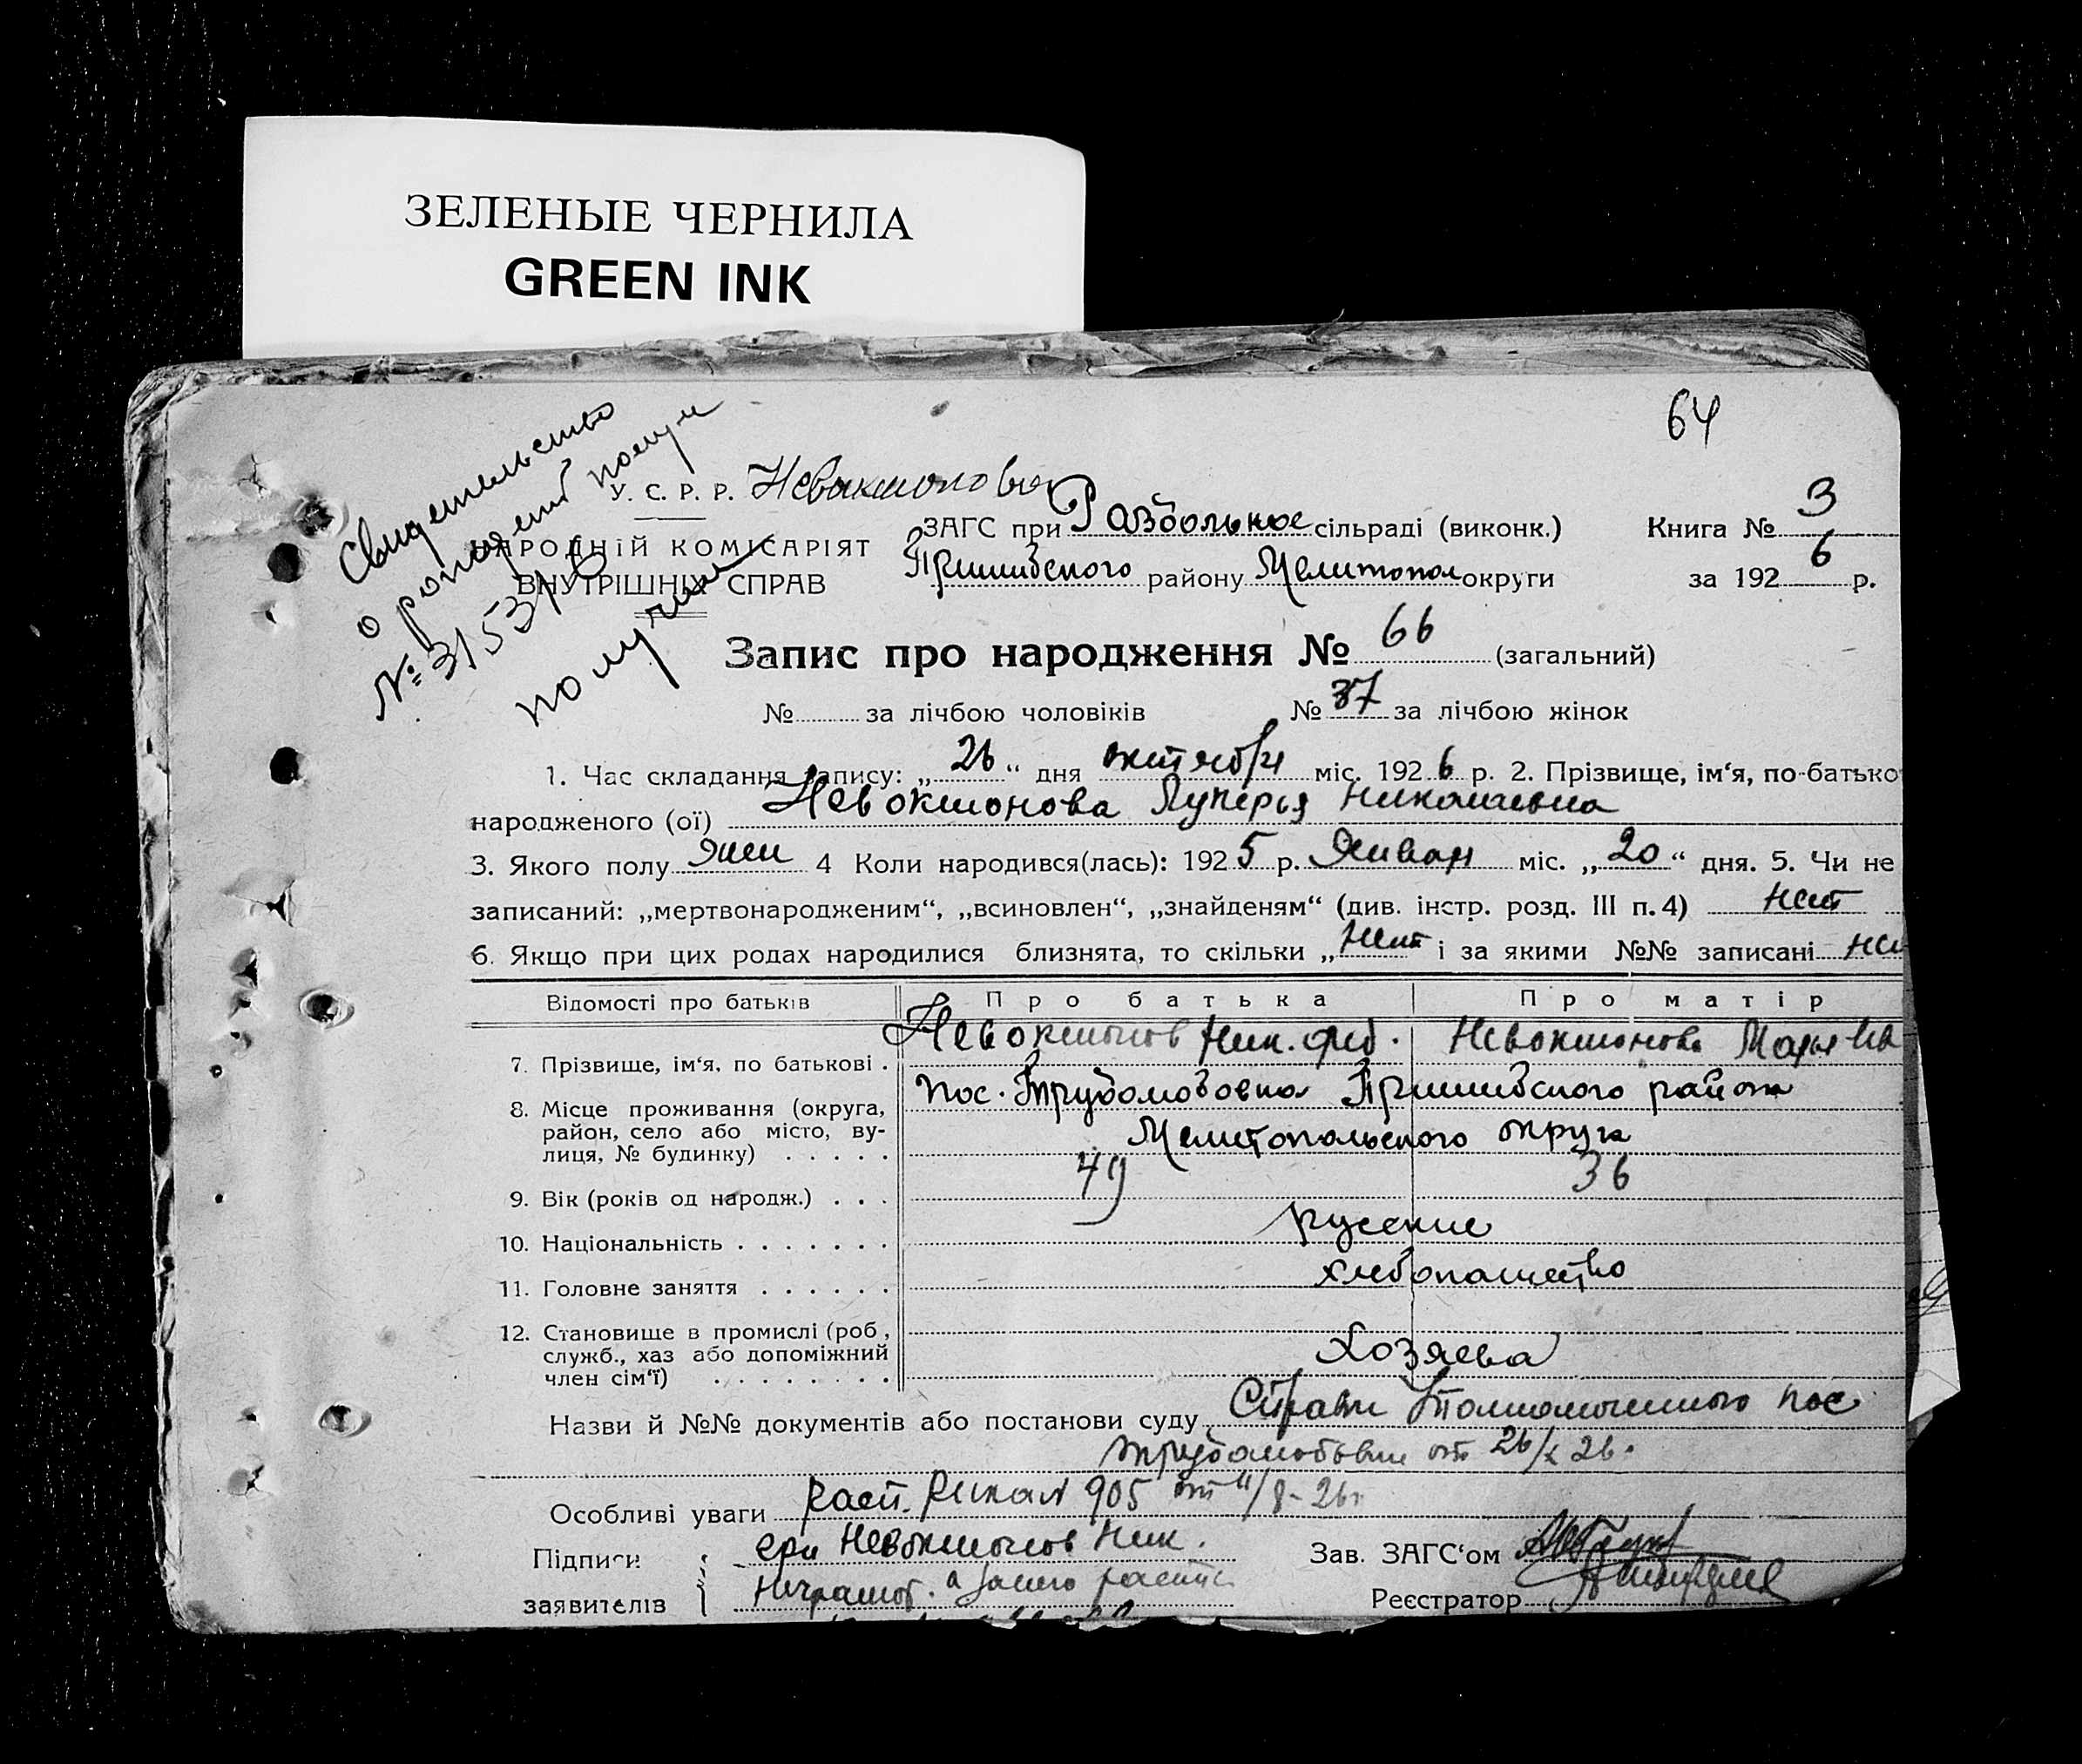 ЗЕЛЕНЫЕ ЧЕРНИЛА
GREEN INK
64
Свидетельство
о
№ 3153
У. С. Р. Р.
НАРОДНІЙ КОМІСАРІЯТ
ВНУТРІШНІХ СПРАВ
ЗАГС при Развольное сільраді (виконк.) Книга № 3
Пришибского району Мелитопол округи за 1926 р.
Запис про народження № 66 (загальний)
№ за лічбою чоловіків № 37 за лічбою жінок
1. Час складання запису: „26“ дня октября міс. 1926 р. 2. Прізвище, ім‘я, по-батько
народженого (ої) Невокшонова Лукерья Николаевна
3. Якого полу жен 4 Коли народився(лась): 1925 р. Январ міс. „20“ дня. 5. Чи не
записаний: „мертвонародженим“, „всиновлен“, „знайденям“ (див. інстр. розд. III п. 4) нет
6. Якщо при цих родах народилися близнята, то скільки „нет і за якими №№ записані не
Відомості про батьків Про батька Про матір
7. Прізвище, ім‘я, по батькові . Невокшонов Ник. Невокшонова Марья
8. Місце проживання (округа, район, село або місто, вулиця, № будинку) . . . . . пос. Пришибского района
Мелитопольского округа
9. Вік (років од народж.) . . . 49 36
10. Національність . . . . . . . русские
11. Головне заняття . . . . . . хлебопашество
12. Становище в промислі (роб., служб., хаз або допоміжний член сім‘ї) . . . . . . . . Хозяева
Назви й №№ документів або постанови суду пос
от 26/X 26.
Особливі уваги 905 от 11/8-26г
Підписи Невокшонов Ник. Зав. ЗАГС‘ом
заявителів Неграмот. а Реєстратор